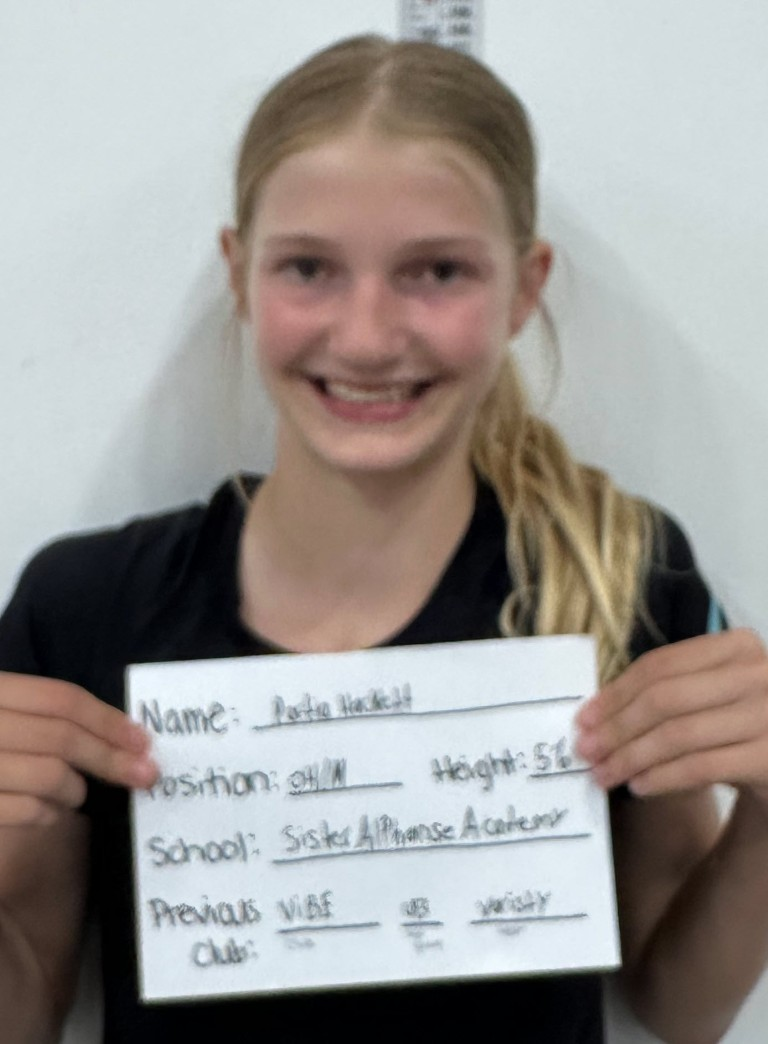 Name: Portia Hackett
Position: OH/M Height: 5'6
School: Sister Alphonse Academy
Previous ViBE varisty
Club: